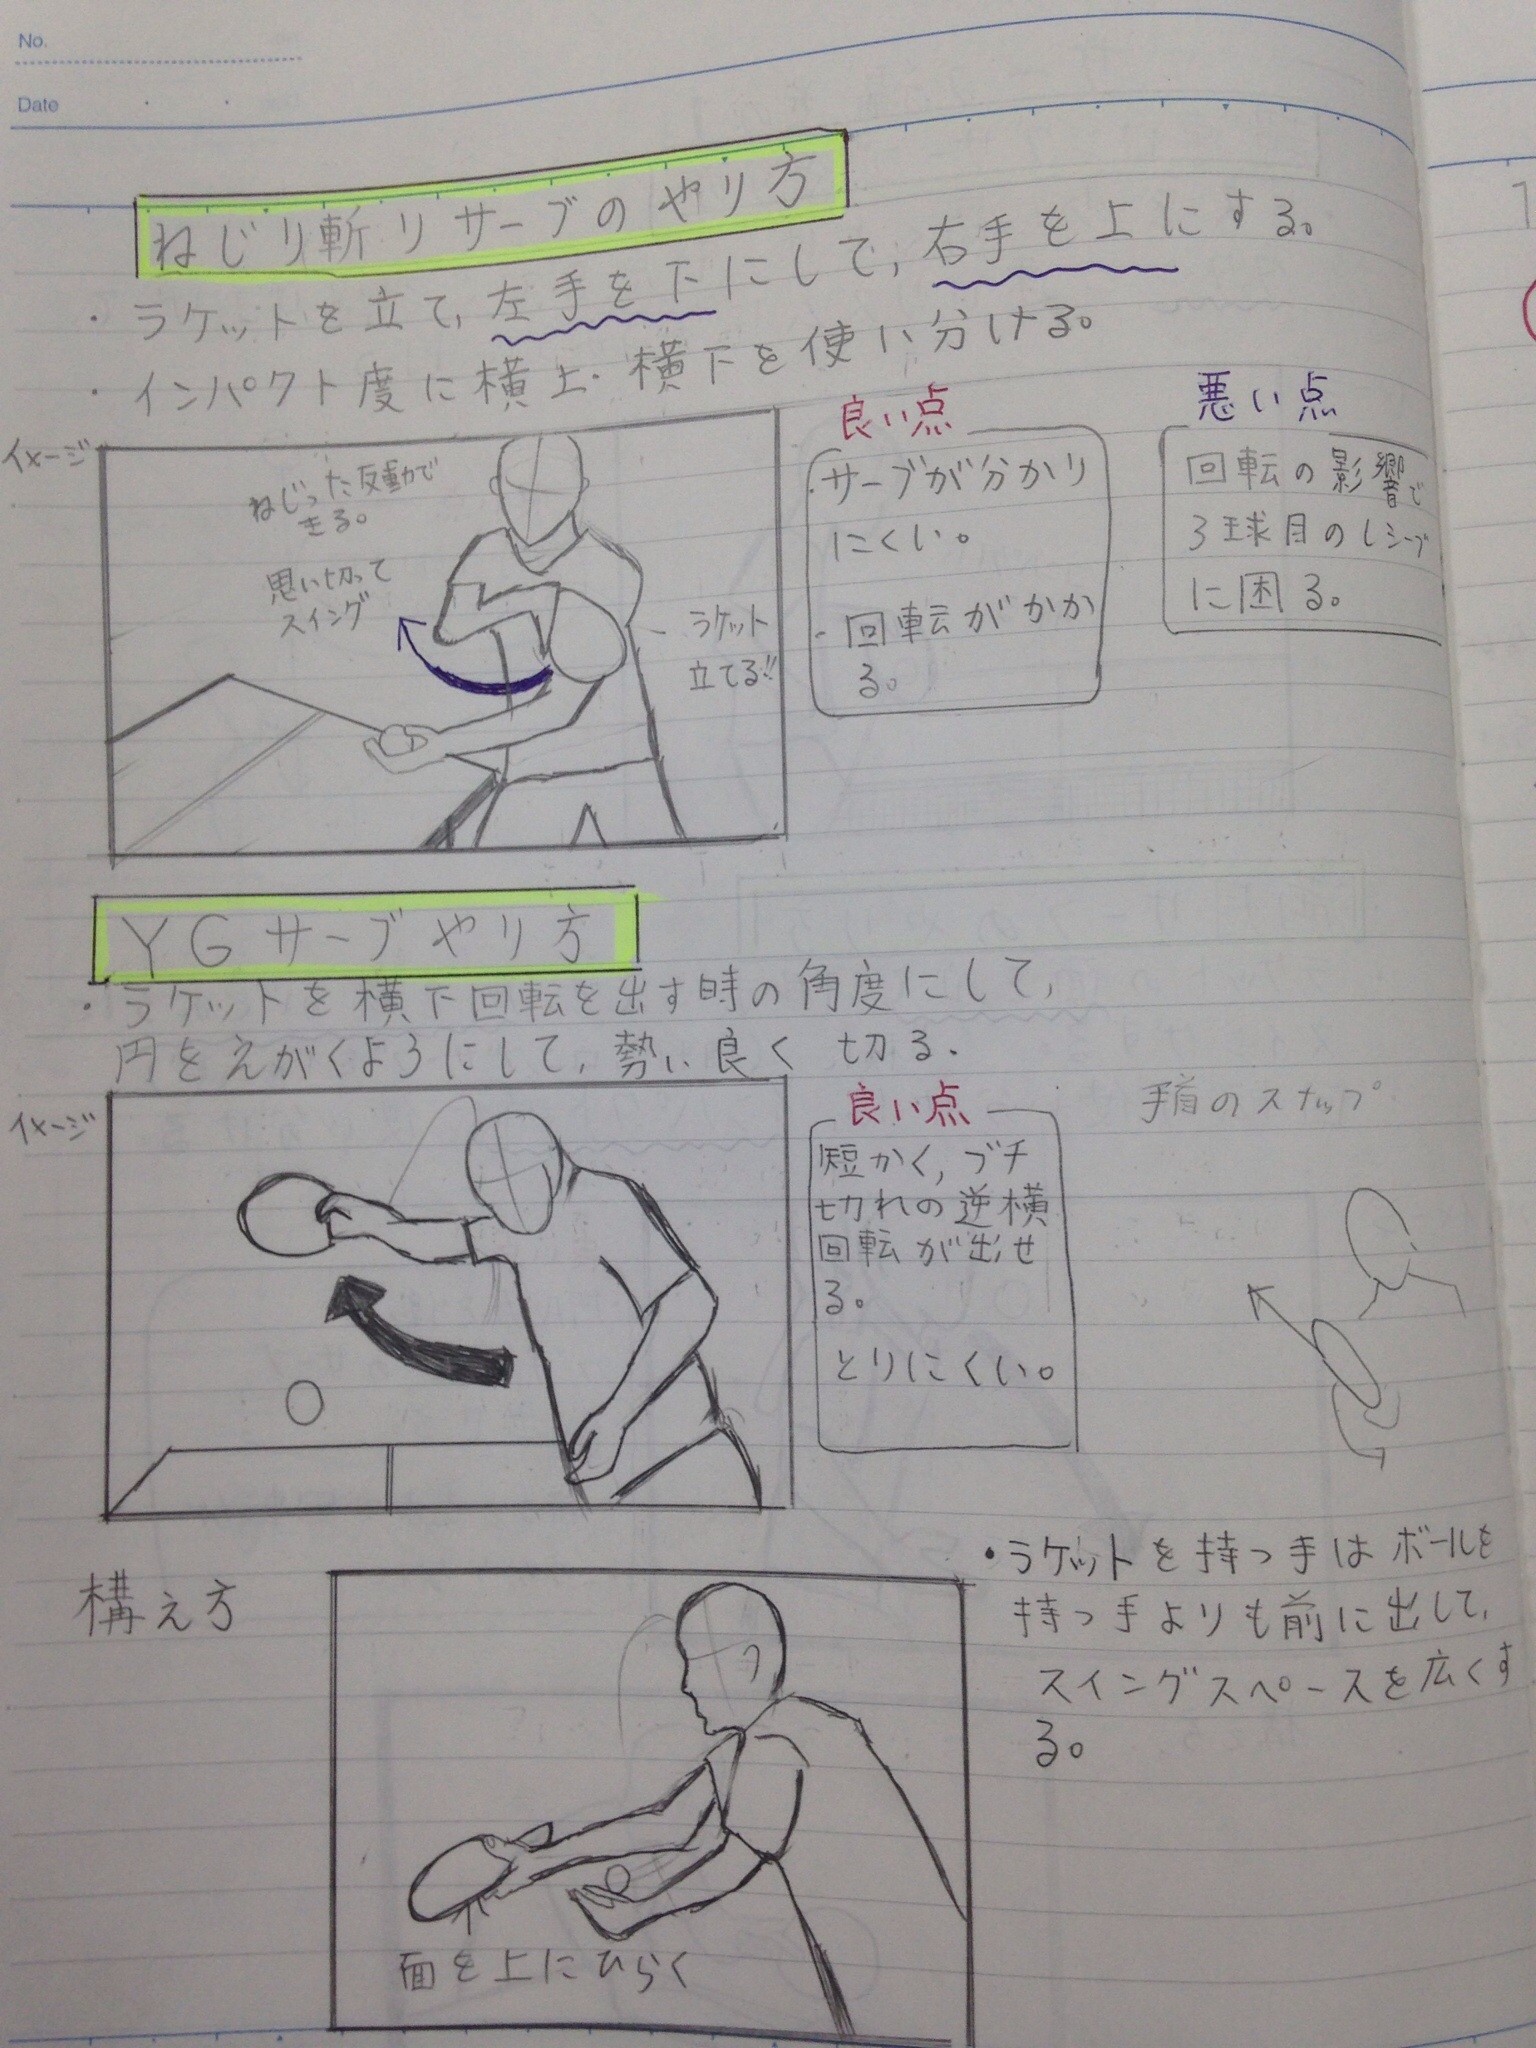 No.
Date
ねじり斬りサーブのやり方
・ラケットを立て、左手を下にして、右手を上にする。
・インパクト度に横上・横下を使い分ける。
イメージ
ねじった反動で
きる。
思い切って
スイング
ラケット
立てる!!
良い点
・サーブが分かり
にくい。
・回転がかか
る。
悪い点
回転の影響で
3球目のレシーブ
に困る。
YGサーブやり方
・ラケットを横下回転を出す時の角度にして、
円をえがくようにして、勢い良く切る。
イメージ
良い点
短かく、ブチ
切れの逆横
回転が出せ
る。
とりにくい。
手首のスナップ
構え方
面を上にひらく
・ラケットを持つ手はボールを
持つ手よりも前に出して、
スイングスペースを広くす
る。